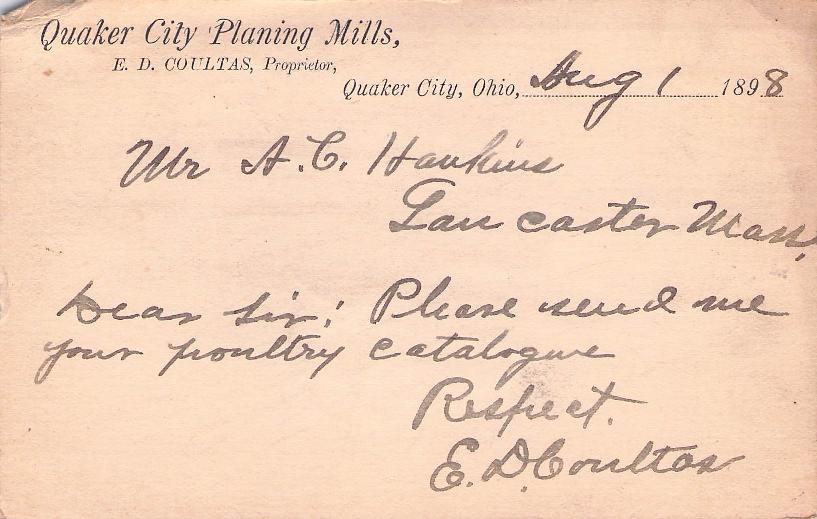 Quaker City Planing Mills,
E. D. COULTAS, Proprietor,
Quaker City, Ohio, Aug 1 1898
Mr A. C. Hawkins
Lancaster Mass,
Dear Sir: Please send me
your poultry catalogue
Respect.
E. D. Coultas